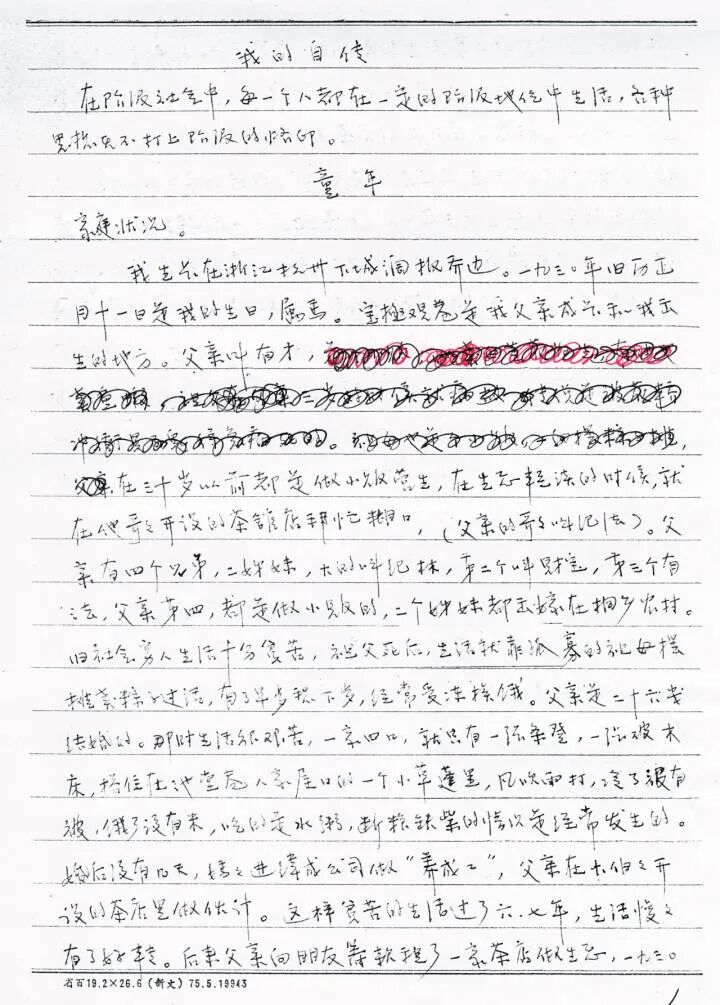 我的自传
在阶级社会中，每一个人都在一定的阶级地位中生活，各种
思想无不打上阶级的烙印。
童年
家庭状况。
我生长在浙江杭州下城洞板桥边。一九三〇年旧历正
月十一日是我的生日，属马。是我父亲成长和我出
生的地方。父亲叫有才，
父亲在三十岁以前都是做小贩营生，在生意轻淡的时候，就
在他哥哥开设的茶館店帮忙糊口，（父亲的哥哥叫纪法）。父
亲有四个兄弟，二姊妹，大的叫纪林，第二个叫，第三个有
法，父亲第四，都是做小贩的，二个姊妹都出嫁在桐乡农村。
旧社会穷人生活十分贫苦，祖父死后，生活就靠孤寡的祖母摆
挑卖粽子过活，有了早岁积下岁，经常受冻挨饿。父亲是二十六岁
结婚的。那时生活很艰苦，一家四口，就只有一张条凳，一张破木
床，搭住在人家屋口的一个小草蓬里，风吹雨打，冷了没有
被，饿了没有米，吃的是水粥，断粮缺柴的情况是经常发生的。
婚后没有几天，妈妈进緯成公司做“养成工”，父亲在大伯伯开
设的茶店里做伙计。这样贫苦的生活过了六.七年，生活慢慢
有了好转。后来父亲向朋友筹款租了一家茶店做生意，一九三〇
省百19.2×26.6（新文）75.5.19943
1